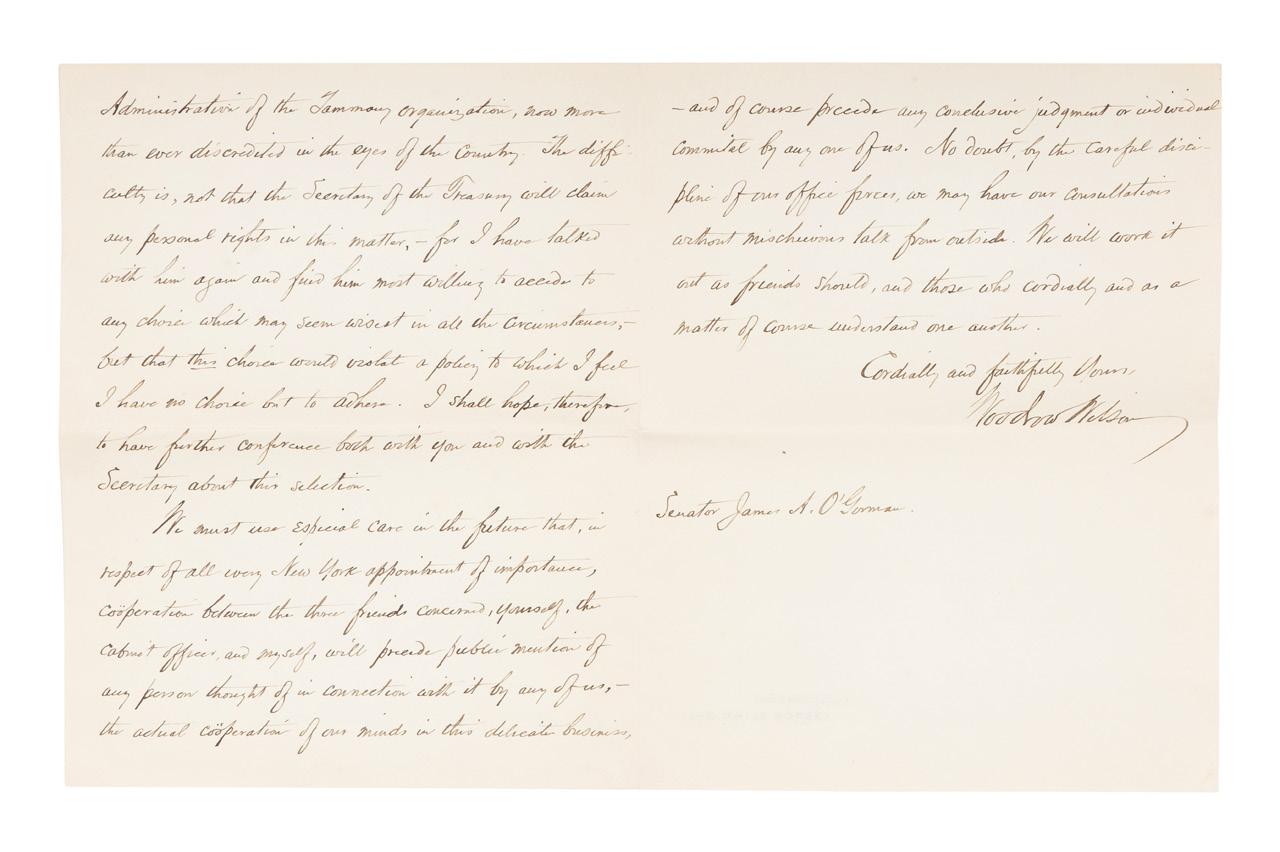 Administration of the Tammany organization, now more
than ever discredited in the eyes of the Country. The diffi-
culty is, not that the Secretary of the Treasury will claim
any personal rights in this matter, – for I have talked
with him again and find him most willing to accede to
any choice which may seem wisest in all the circumstances, –
but that this choice would violate a policy to which I feel
I have no choice but to adhere. I shall hope, therefore,
to have further conference both with you and with the
Secretary about this selection.
We must use especial care in the future that, in
respect of all every New York appointment of importance,
coöperation between the three friends concerned, yourself, the
cabinet officer, and myself, will precede public mention of
any person thought of in connection with it by any of us, –
the actual coöperation of our minds in this delicate business,
– and of course precede any conclusive judgment or individual
commital by any one of us. No doubt, by the careful disci-
pline of our office forces, we may have our consultations
without mischievous talk from outside. We will work it
out as friends should, and those who cordially and as a
matter of course understand one another.
Cordially and faithfully Yours,
Woodrow Wilson
Senator James A. O'Gorman.